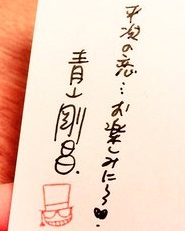 平次の恋…お楽しみに〜♥
青山剛昌.